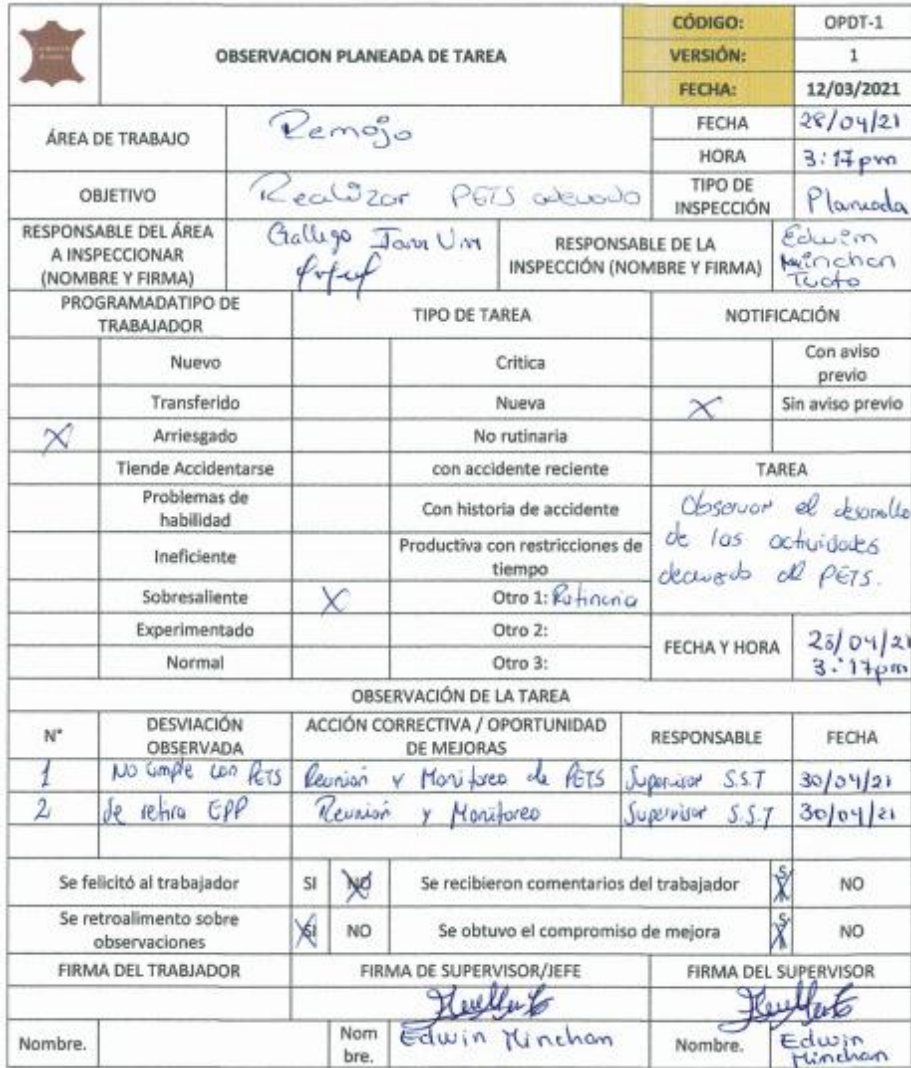 OBSERVACION PLANEADA DE TAREA
CÓDIGO: OPDT-1
VERSIÓN: 1
FECHA: 12/03/2021
ÁREA DE TRABAJO Remojo FECHA 28/04/21
HORA 3:17pm
OBJETIVO Realizar PETS adecuado TIPO DE INSPECCIÓN Planeada
RESPONSABLE DEL ÁREA A INSPECCIONAR (NOMBRE Y FIRMA) Gallego
RESPONSABLE DE LA INSPECCIÓN (NOMBRE Y FIRMA) Edwin Minchan
PROGRAMADATIPO DE TRABAJADOR TIPO DE TAREA NOTIFICACIÓN
Nuevo Critica Con aviso previo
Transferido Nueva X Sin aviso previo
X Arriesgado No rutinaria
Tiende Accidentarse con accidente reciente TAREA
Problemas de habilidad Con historia de accidente Observar el desarrollo
de las actividades
Ineficiente Productiva con restricciones de tiempo
deacuerdo al PETS.
Sobresaliente X Otro 1: Rutinaria
Experimentado Otro 2: FECHA Y HORA 28/04/21
Normal Otro 3: 3:17pm
OBSERVACIÓN DE LA TAREA
N° DESVIACIÓN OBSERVADA ACCIÓN CORRECTIVA / OPORTUNIDAD DE MEJORAS RESPONSABLE FECHA
1 No cumple con PETS Reunión y Monitoreo de PETS Supervisor S.S.T 30/04/21
2 Se retira EPP Reunión y Monitoreo Supervisor S.S.T 30/04/21
Se felicitó al trabajador SI NO Se recibieron comentarios del trabajador SI NO
Se retroalimento sobre observaciones SI NO Se obtuvo el compromiso de mejora SI NO
FIRMA DEL TRABJADOR FIRMA DE SUPERVISOR/JEFE FIRMA DEL SUPERVISOR
Nombre. Nombre. Edwin Minchan Nombre. Edwin Minchan